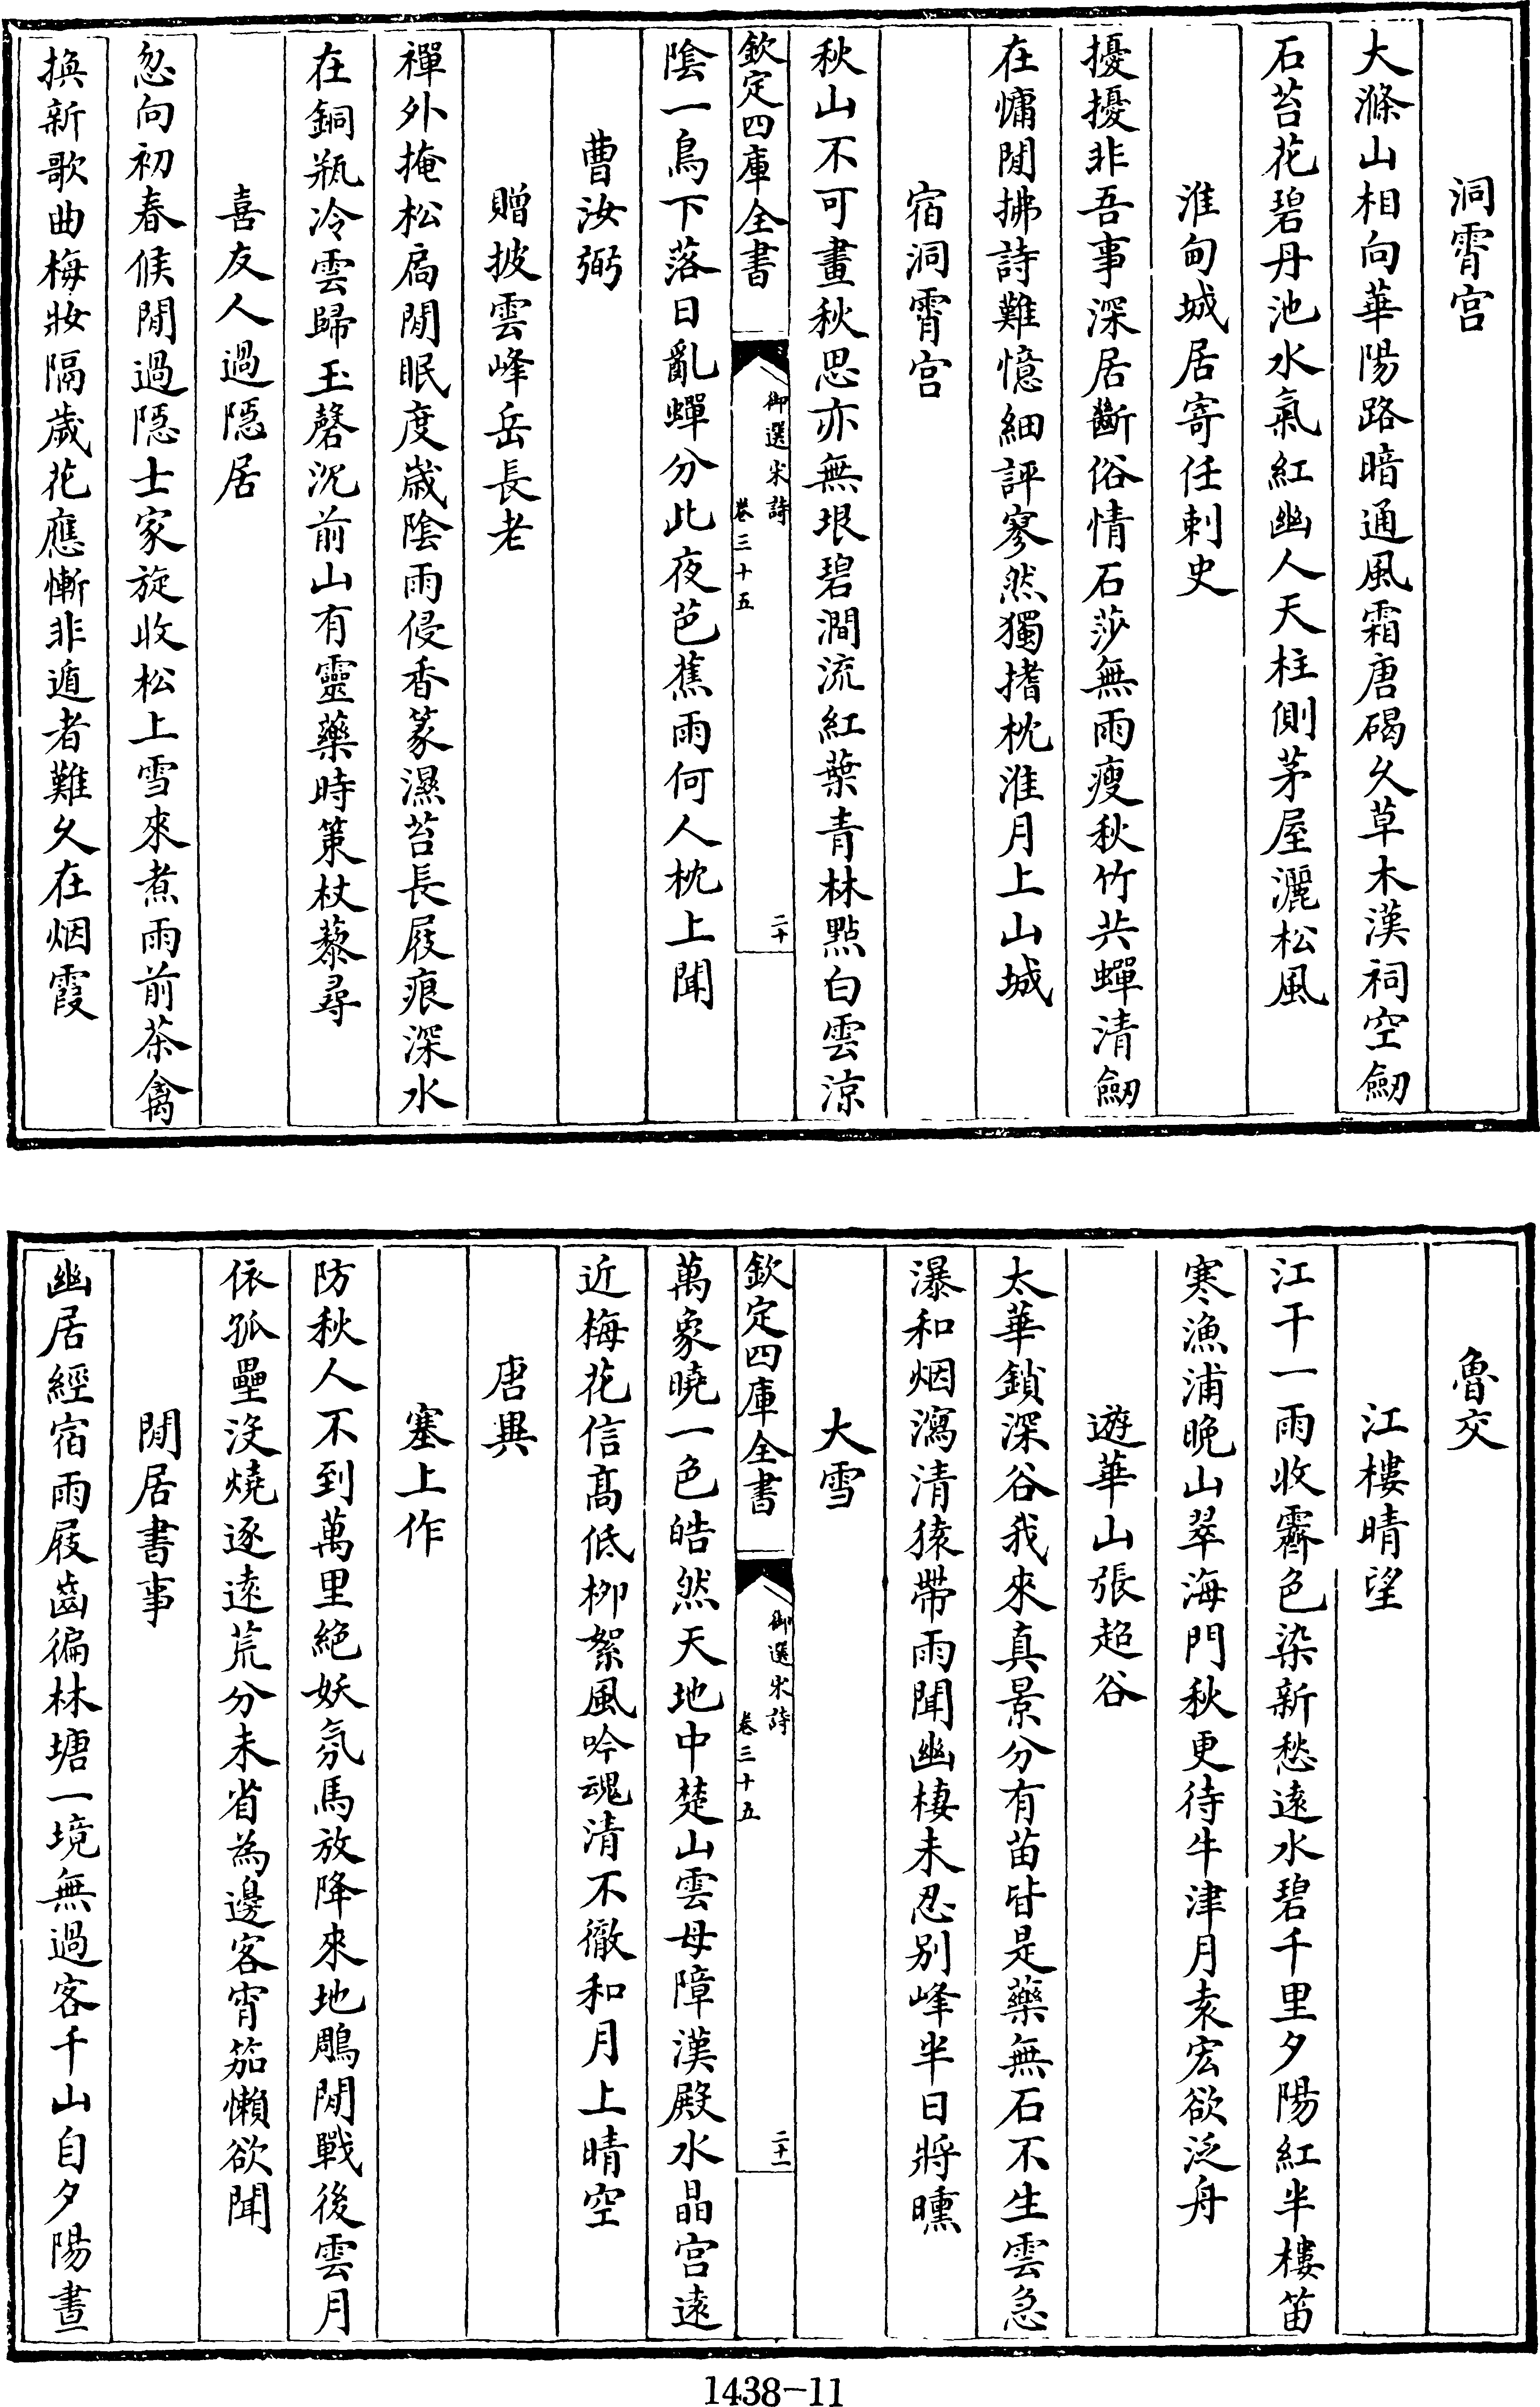 洞霄宫
大滌山相向華陽路暗通風霜唐碣久草木漢祠空劒
石苔花碧丹池水氣紅幽人天柱側茅屋灑松風
淮甸城居寄任刺史
擾擾非吾事深居斷俗情石莎無雨瘦秋竹共蟬清劒
在慵閒拂詩難憶細評寥然獨揩枕淮月上山城
宿洞霄宫
秋山不可畫秋思亦無垠碧澗流紅葉青林點白雲涼
欽定四庫全書
御選宋詩
卷三十五
二十
陰一鳥下落日亂蟬分此夜芭蕉雨何人枕上聞
曹汝弼
贈披雲峰岳長老
禪外掩松扃閒眠度歳陰雨侵香篆濕苔長屐痕深水
在銅瓶冷雲歸玉磬沉前山有靈藥時策杖藜尋
喜友人過隱居
忽向初春候閒過隱士家旋收松上雪來煮雨前茶禽
換新歌曲梅妝隔歳花應慚非遁者難久在烟霞
魯交
江樓晴望
江干一雨收霽色染新愁遠水碧千里夕陽紅半樓笛
寒漁浦晚山翠海門秋更待牛津月袁宏欲泛舟
遊華山張超谷
太華鎖深谷我來真景分有苗皆是藥無石不生雲急
瀑和烟瀉清猿帶雨聞幽棲未忍别峰半日將曛
大雪
欽定四庫全書
御選宋詩
卷三十五
二十一
萬象曉一色皓然天地中楚山雲母障漢殿水晶宫遠
近梅花信髙低栁絮風吟魂清不徹和月上晴空
唐異
塞上作
防秋人不到萬里絶妖氛馬放降來地鵰閒戰後雲月
依孤壘没燒逐遠荒分未省為邊客宵笳懶欲聞
閒居書事
幽居經宿雨屐齒徧林塘一境無過客千山自夕陽晝
1438-11